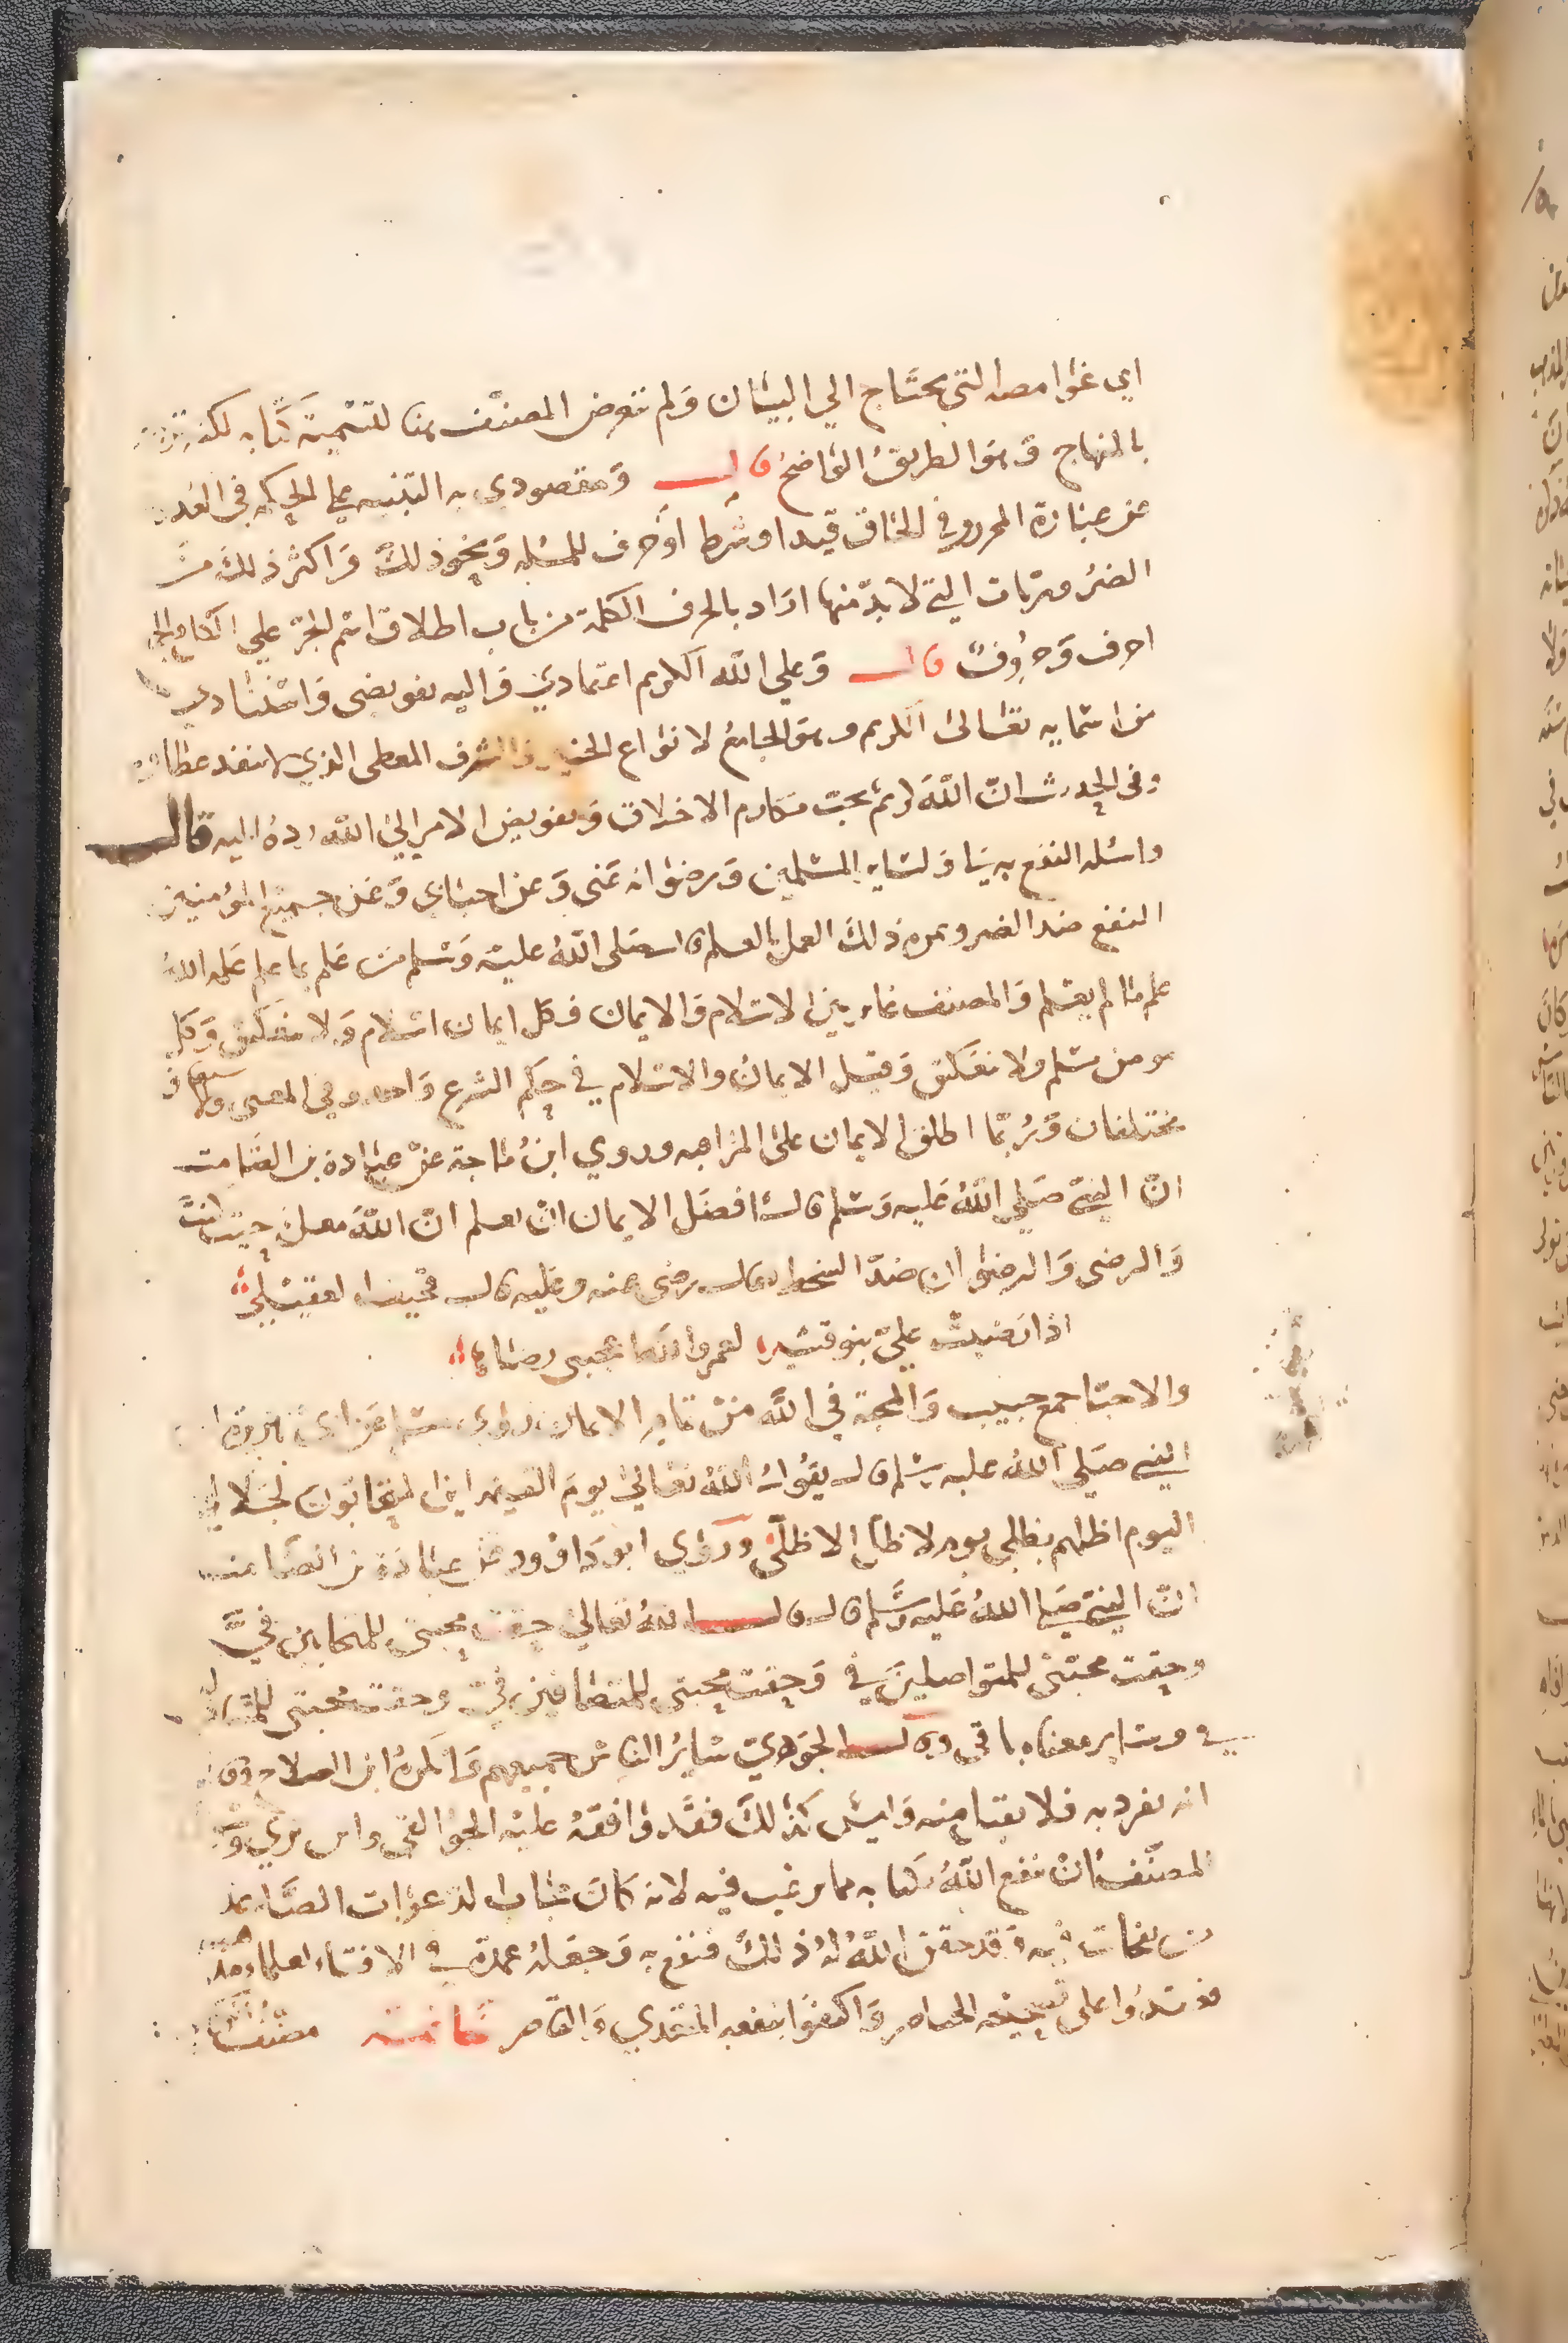 اي غوامضه التي يحتاج الي البيان ولم يتعرض المصنف هنا لتسمية كتابه لكنه
بالمنهاج وهو الطريق الواضح قال ومقصودي به التنبيه علي الحكمة في العدول
عن عبارة المحرر وفي الحاق قيد او شرط او حرف للمسله ونحو ذلك واكثر ذلك من
الضروريات التي لا بد منها اراد بالحرف الكلمة من باب اطلاق اسم الجزء علي الكل والجمع
احرف وحروف قال وعلي الله الكريم اعتمادي واليه تفويضي واستنادي
من اسمايه تعالى الكريم وهو الجامع لانواع الخير والشرف المعطي الذي لا ينفد عطاوه
وفي الحديث ان الله كريم يحب مكارم الاخلاق وتفويض الامر الي الله رده اليه قال
واسله النفع به لي ولساير المسلمين ورضوانه عني وعن احباي وعن جميع المؤمنين
النفع ضد الضر وثمرة ذلك العمل بالعلم قال صلى الله عليه وسلم من عمل بما علم علمه الله
علم ما لم يعلم والمصنف غاير بين الاسلام والايمان فكل ايمان اسلام ولا ينعكس وكل
مومن مسلم ولا ينعكس وقيل الايمان والاسلام في حكم الشرع واحد وفي المعنى والاشتقاق
مختلفان وربما اطلق الايمان على المزاهمه وروي ابن ماجة عن عبادة بن الصامت
ان النبي صلي الله عليه وسلم قال افضل الايمان ان تعلم ان الله معك حيث كنت
والرضى والرضوان ضد السخط يقال رضي عنه وعليه قال قحيف العقيلي
اذا رضيت علي بنو قشير لعمر الله اعجبني رضاها
والاحبا جمع حبيب والمحبة في الله من ثمار الايمان روي مسلم عن ابي هريرة ان
النبي صلي الله عليه وسلم قال يقول الله تعالى يوم القيمة اين المتحابون لجلالي
اليوم اظلهم بظلي يوم لا ظل الا ظلي وروي ابو داوود عن عبادة بن الصامت
ان النبي صلى الله عليه وسلم قال قال الله تعالى حقت محبتي للمتحابين في
وحقت محبتي للمتواصلين في وحقت محبتي للمتصافين في وحقت محبتي للمتباذلين
في وساير معناه باقي وقال الجوهري ساير الناس جميعهم وانكره ابن الصلاح وقال
انه تفرد به فلا يقبل منه وليس كذلك فقد وافقه عليه الجواليقي وابن بري
المصنف ان ينفع الله بكتابه مما يرغب فيه لانه كان مجاب الدعوات الصاعد
من نفحات ربه وقد حقق الله له ذلك فنفع به وجعله عمدة في الافتاء لعلماء
فاعتمدوا على تصحيحه الحاضر واكتفوا بنفعه المتعدي والقاصر خاتمة مصنف